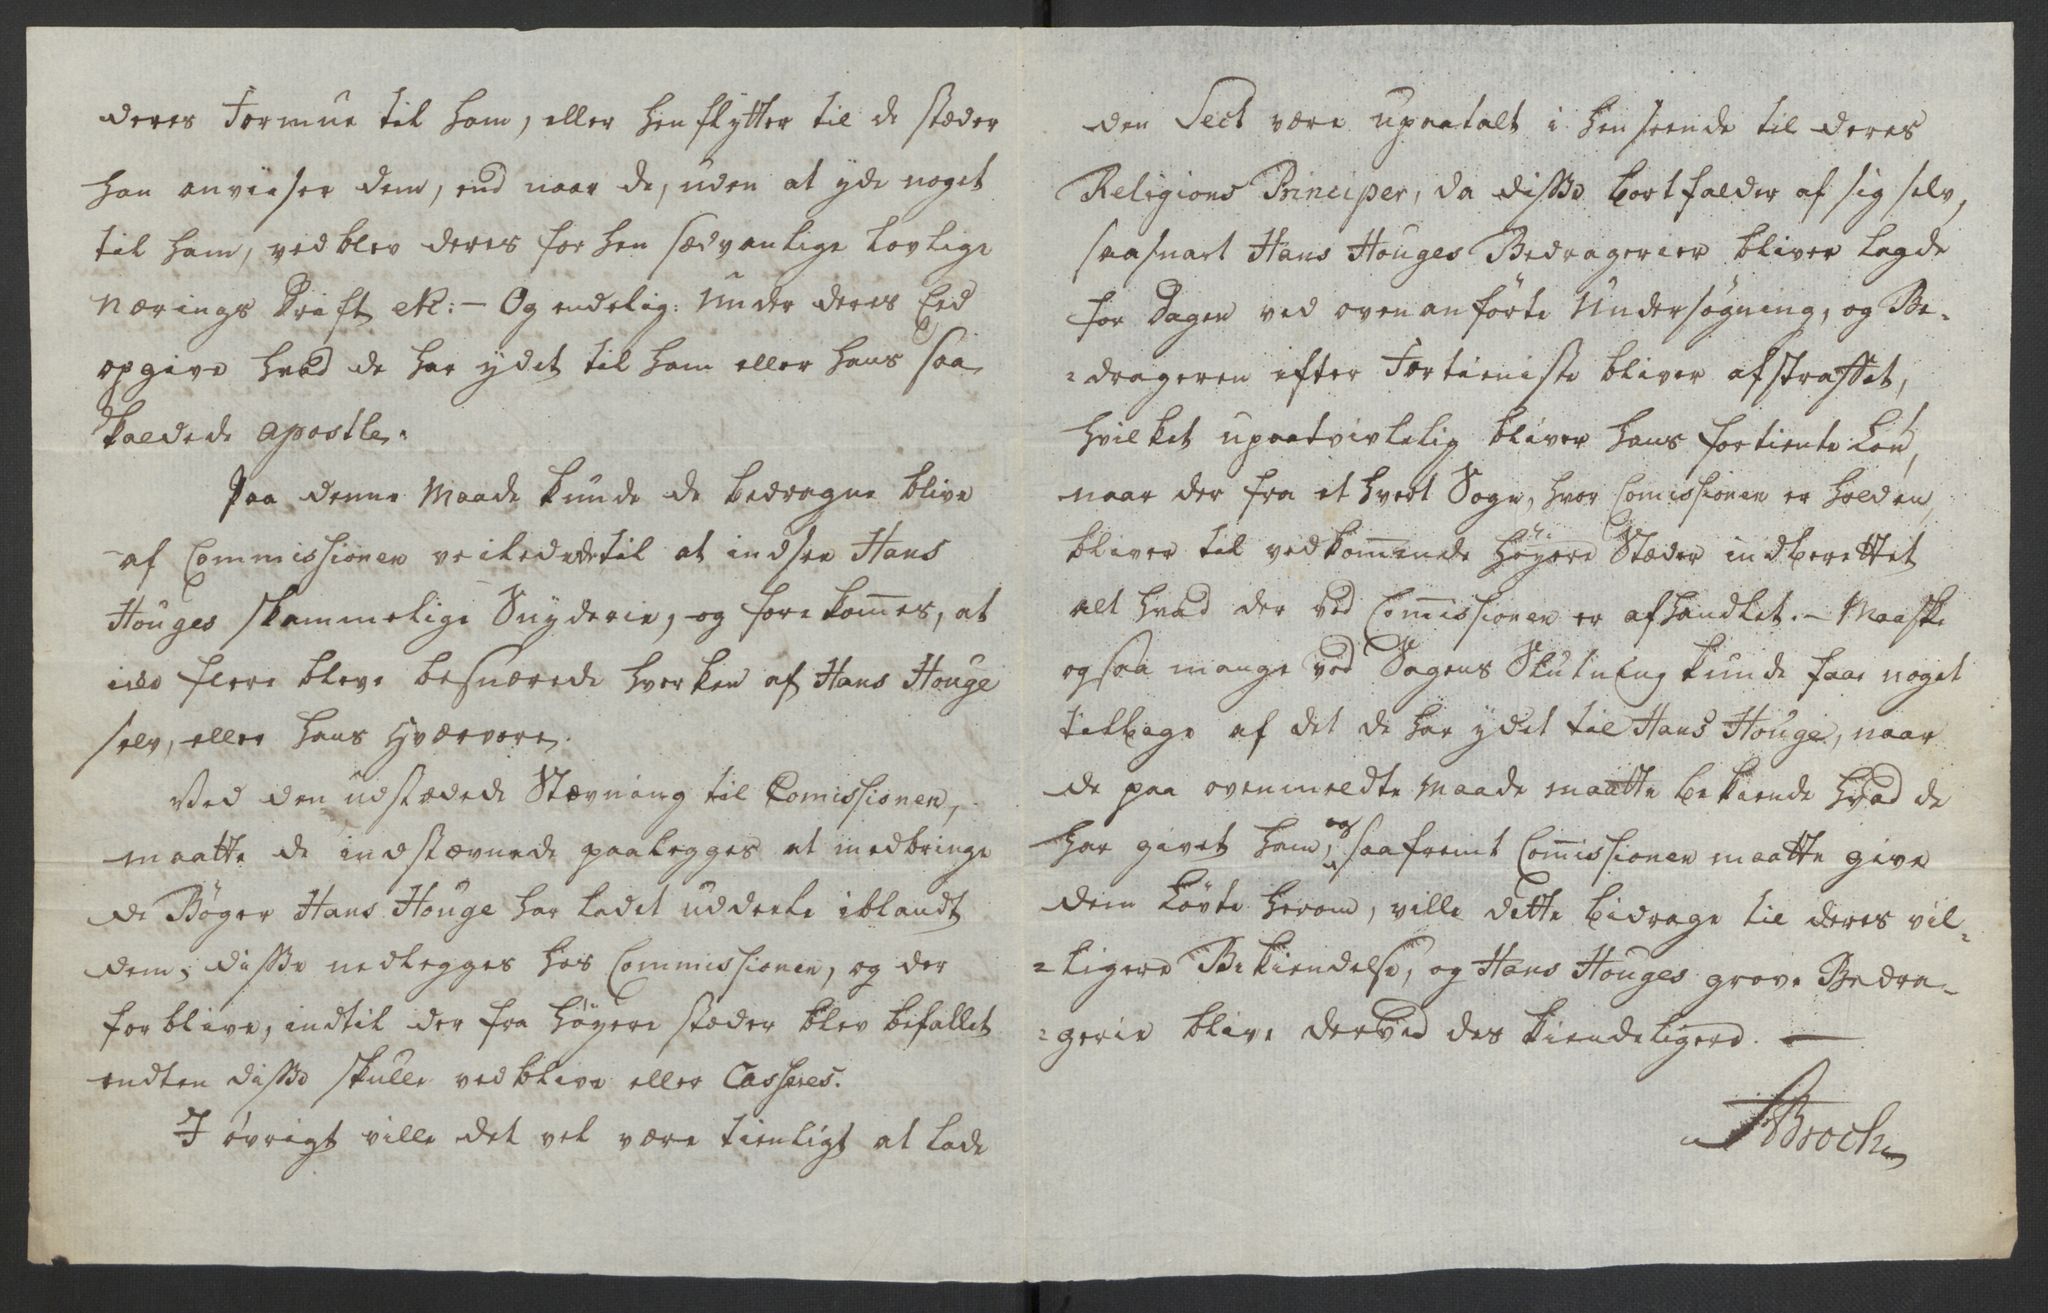 deres Formue til ham, eller henflytter til de stæder
han anviiser dem, end naar de, uden at yde noget
til ham, vedblev deres forhen sædvanlige lovlige
Nærings Drift etc: – Og endelig: Under deres Eed
opgive hvad de har ydet til ham eller hans saa
kaldede apostle.
Paa denne Maade kunde de bedragne blive
af Commissionen veiledede til at indsee Hans
Houges skammelige Snyderie, og forekom̅es, at
icke flere bleve besnærede hverken af Hans Houge
selv, eller hans Hværvere.
Ved den udstædede Stævning til Com̅issionen,
maatte de indstævnede paalegges at medbringe
de Bøger Hans Houge har ladet uddeele iblandt
dem; disse nedlegges hos Commissionen, og der
forblive, indtil der fra høyere stæder blev befallet
endten disse skulle vedblive eller Casseres.
I øvrigt ville det vel være tienligt at lade
den Sect være upaatalt i henseende til deres
Religions Principer, da disse bortfalder af sig selv,
saasnart Hans Houges Bedragerier bliver lagde
for Dagen ved ovenanførte Undersøgning, og Be-
drageren efter Fortieniste bliver afstraffet,
hvilket upaatvivlelig bliver hans fortiente Løn,
naar der fra et hvert Sogn, hvor Com̅issionen er holden
bliver til vedkom̅ende Høyere Stæder indberettet
alt hvad der ved Com̅issionen er afhandlet. – Maaske
ogsaa mange ved Sagens Slutning kunde faae noget
tilbage af det de har ydet til Hans Houge, naar
de paa ovenmeldte Maade maatte bekiende hvad de
har givet ham, og saafremt Com̅issionen maatte give
dem Løvte herom, ville dette bidrage til deres vil-
ligere Bekiendelse, og Hans Houges grove Bedra-
gerie blive derved des kiendeligere. —
Broch